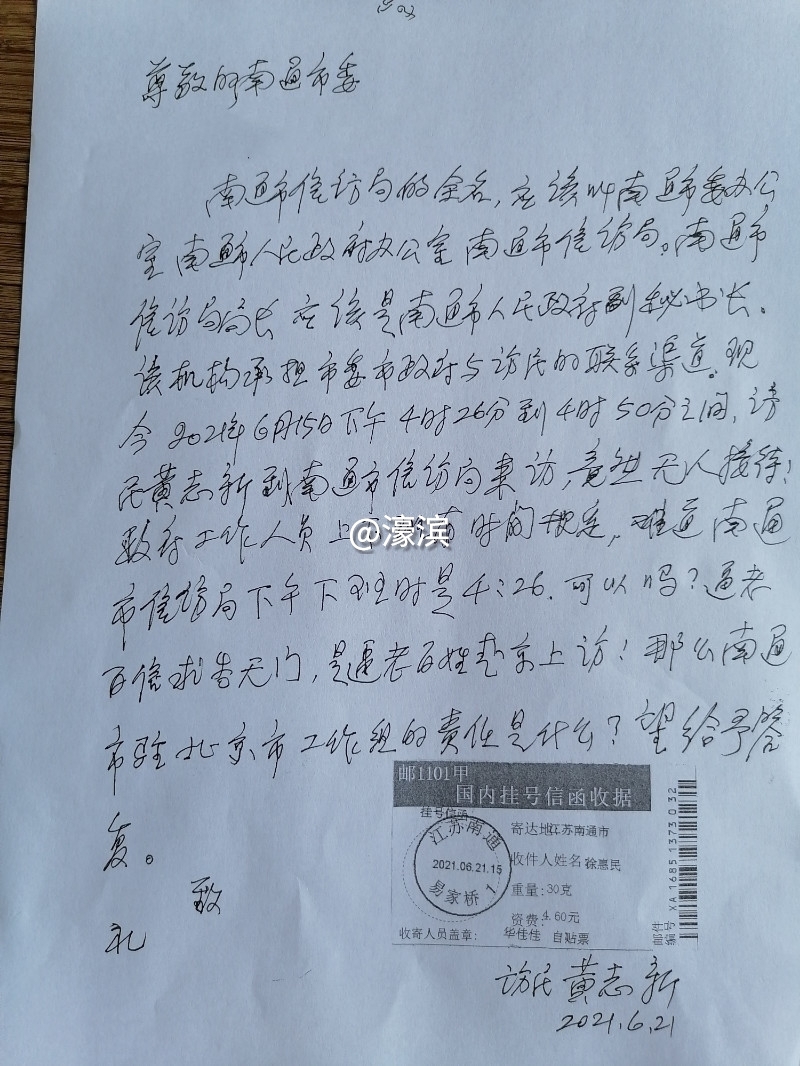 尊敬的南通市委
南通市信访局的全名,应该叫南通市委办公
室南通市人民政府办公室南通市信访局。南通市
信访局局长应该是南通市人民政府副秘书长。
该机构承担市委市政府与访民的联系渠道。现
今2021年6月15日下午4时26分到4时50分之间,访
民黄志新到南通市信访局来访,竟然无人接待!
政府工作人员上下 有时间规定,难道南通
@濠滨
市信访局下午下班时是4:26.可以吗?逼老
百信求告无门,是逼老百姓赴京上访!那么南通
市驻北京市工作组的责任是什么?望给予答
复。
致
礼
邮1101甲
国内挂号信函收据
挂号信函
江苏南通
2021.06.21.15
易家桥 1
寄达地:江苏南通市
收件人姓名:徐惠民
重量:30克
资费:4.60元
收寄人员盖章: 华佳佳 自贴票
邮件编号 XA 1685 1373 0 32
访民黄志新
2021.6.21